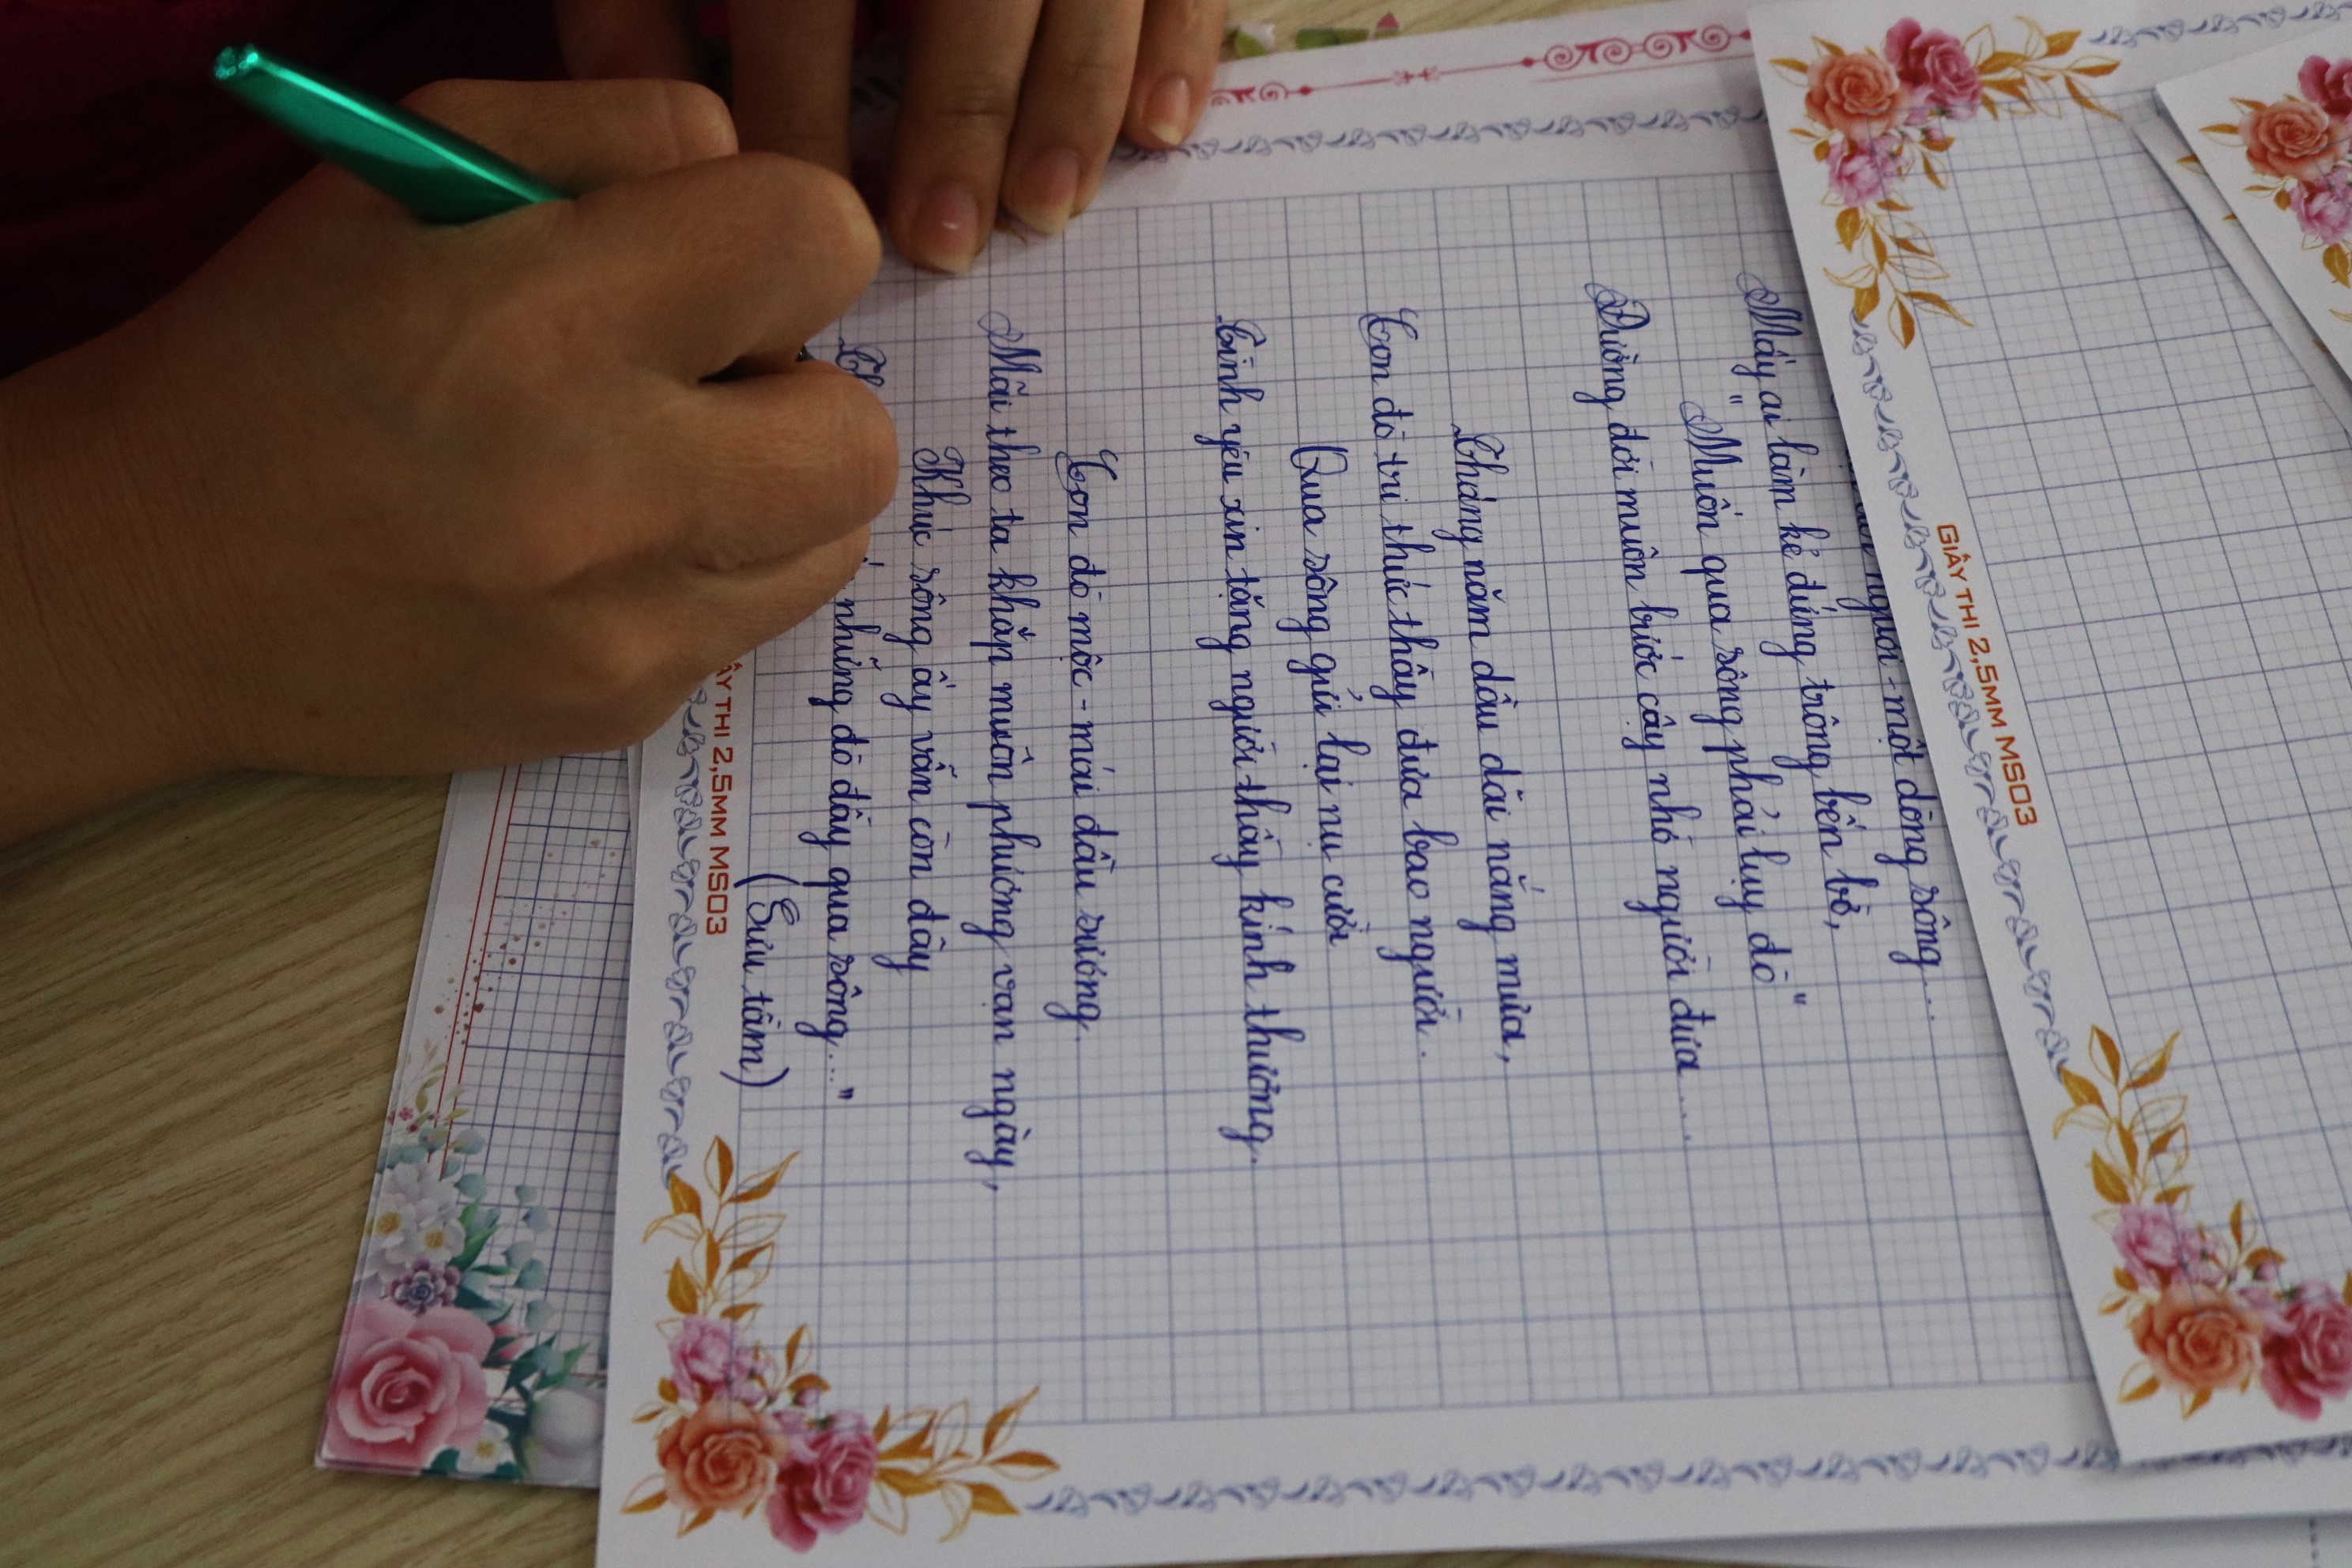 người - một dòng sông...
Mấy ai làm kẻ đứng trông bến bờ,
"Muốn qua sông phải lụy đò"
Đường đời muôn bước cậy nhờ người đưa...
Tháng năm dầu dãi nắng mưa,
Con đò tri thức thầy đưa bao người.
Qua sông gửi lại nụ cười
Tình yêu xin tặng người thầy kính thương.
Con đò mộc - mái đầu sương.
Mãi theo ta khắp muôn phương vạn ngày,
Khúc sông ấy vẫn còn đây
những đò đầy qua sông..."
(Sưu tầm)
THI 2,5MM MS03
GIẤY THI 2,5MM MS03